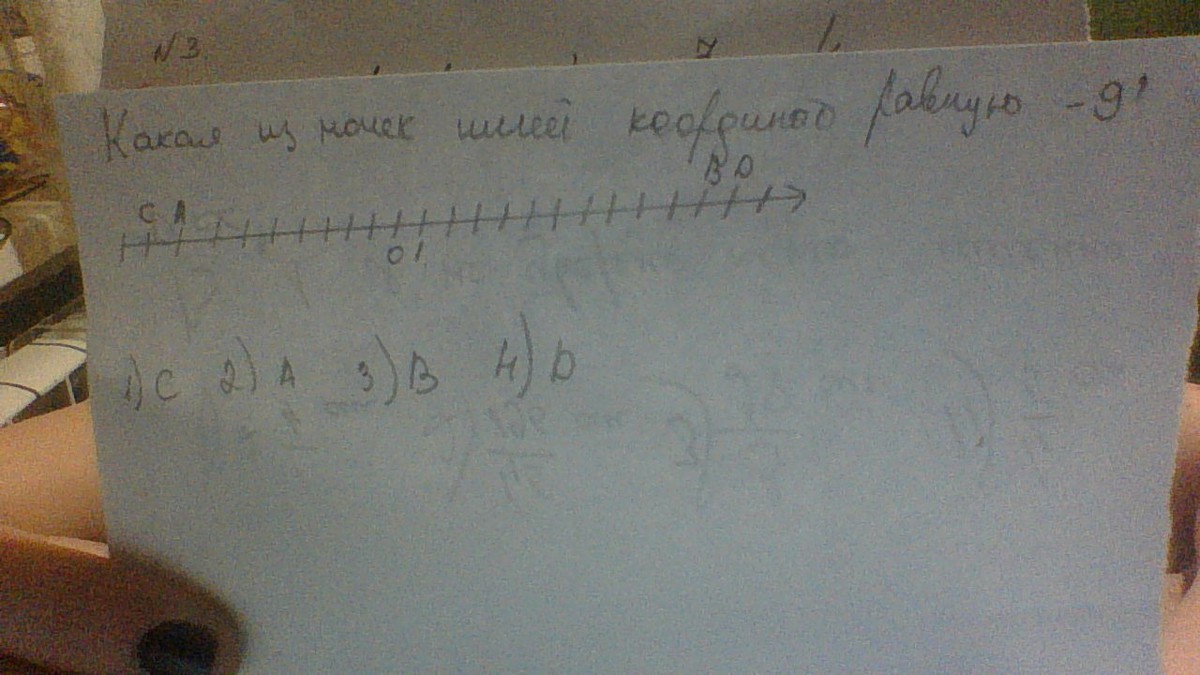 N 3.
7
Какая из точек имеет координат равную -9?
C A B D
0 1
1) C 2) A 3) B 4) D